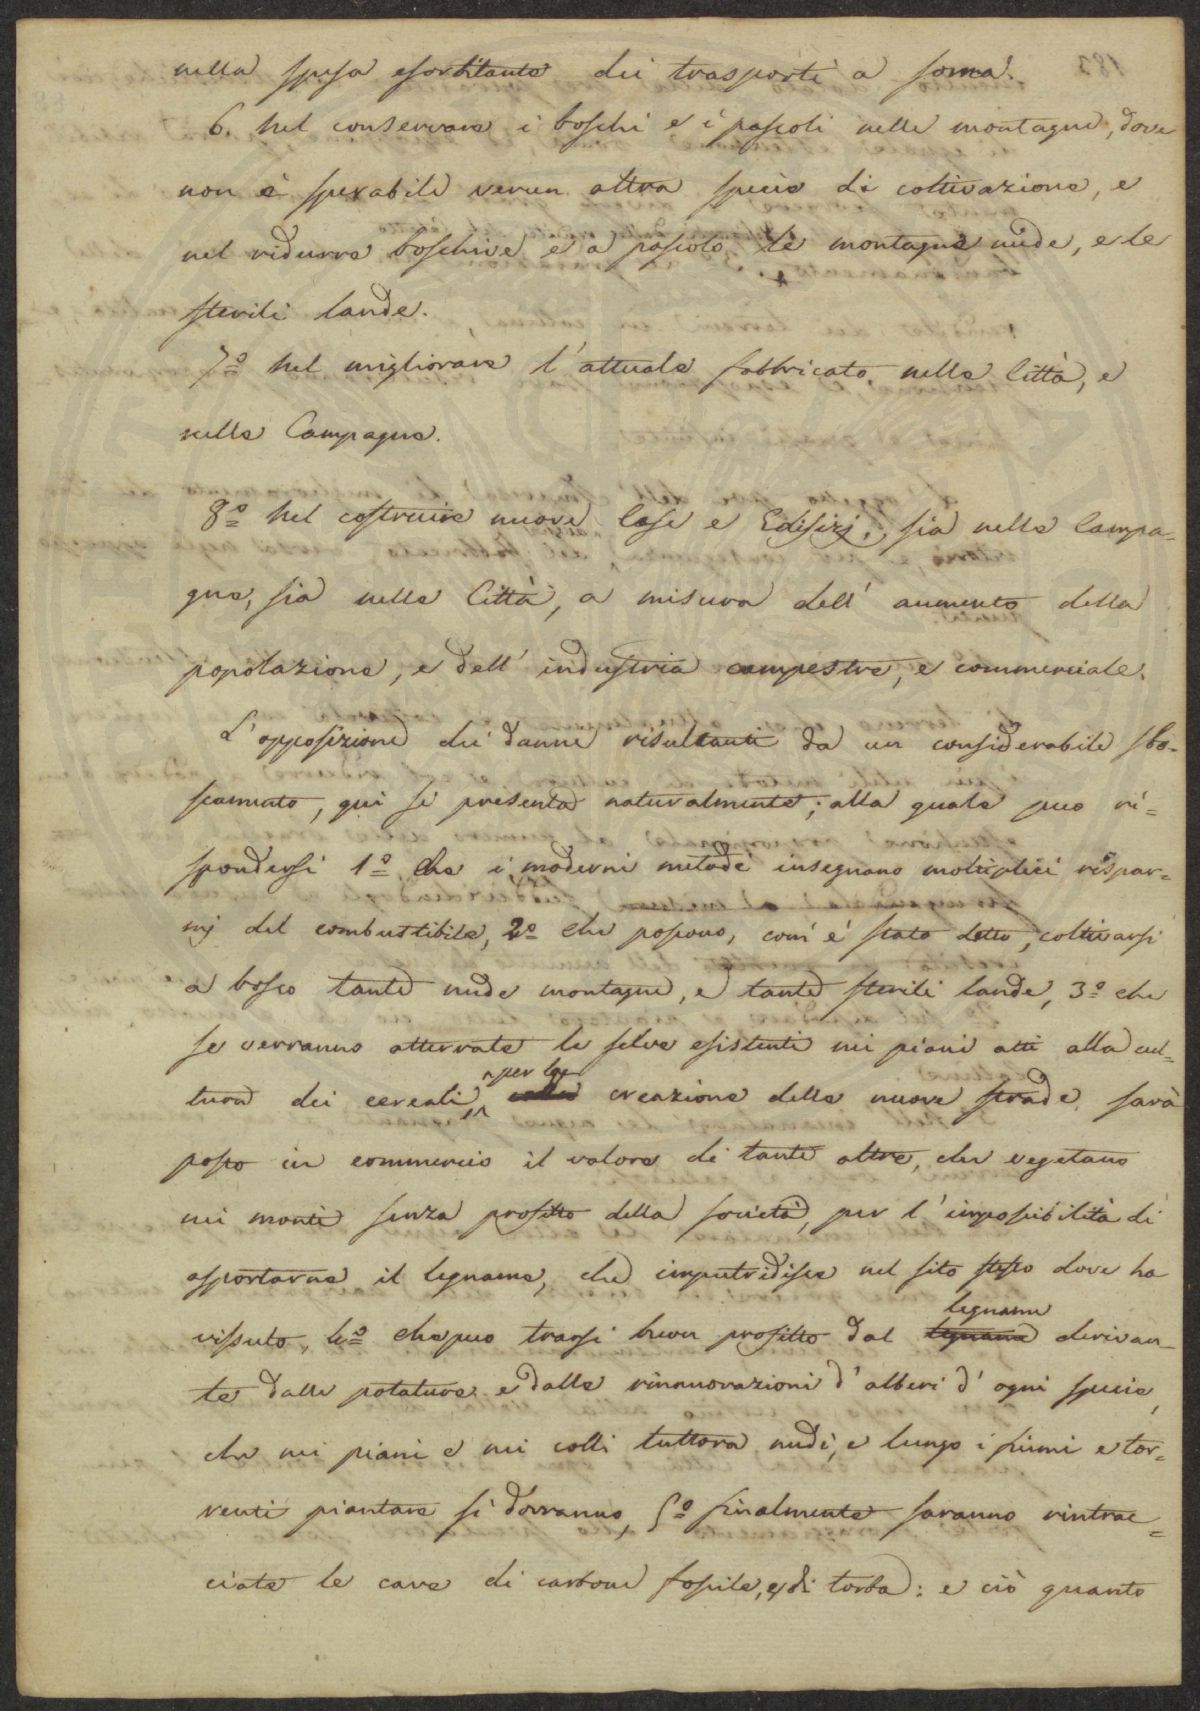 nella spesa esorbitante dei trasporti a soma.
6. Nel conservare i boschi e i pascoli nelle montagne, dove
non è sperabile verun altra specie di coltivazione, e
nel ridurre boschive e a pascolo le montagne nude, e le
sterili lande.
7º Nel migliorare l'attuale fabbricato nelle Città, e
nelle Campagne.
8º Nel costruire nuove Case e Edifizj, sia nelle Campa-
gne, sia nelle Città, a misura dell'aumento della
popolazione, e dell'industria campestre, e commerciale.
L'opposizione dei danni risultanti da un considerabile sbo-
scamento, qui si presenta naturalmente; alla quale puo ri-
spondersi 1º Che i moderni metodi insegnano molteplici rispar-
mj del combustibile, 2º che possono, com'è stato detto, coltivarsi
a bosco tante nude montagne, e tante sterili lande, 3º che
se verranno atterrate le selve esistenti nei piani atti alla cul-
per la
tura dei cereali, creazione delle nuove strade sarà
posto in commercio il valore di tante altre, che vegetano
nei monti senza profitto della società, per l'impossibilità di
asportarne il legname, che imputridisce nel sito stesso dove ha
legname
vissuto, 4º che puo trarsi buon profitto dal legname derivan-
te dalle potature e dalle rinnuovazioni d'alberi d'ogni specie,
che nei piani e nei colli tuttora nudi, e lungo i fiumi e tor-
renti piantare si dovranno, 5º finalmente saranno rintrac-
ciate le cave di carbone fossile, e di torba: e ciò quanto